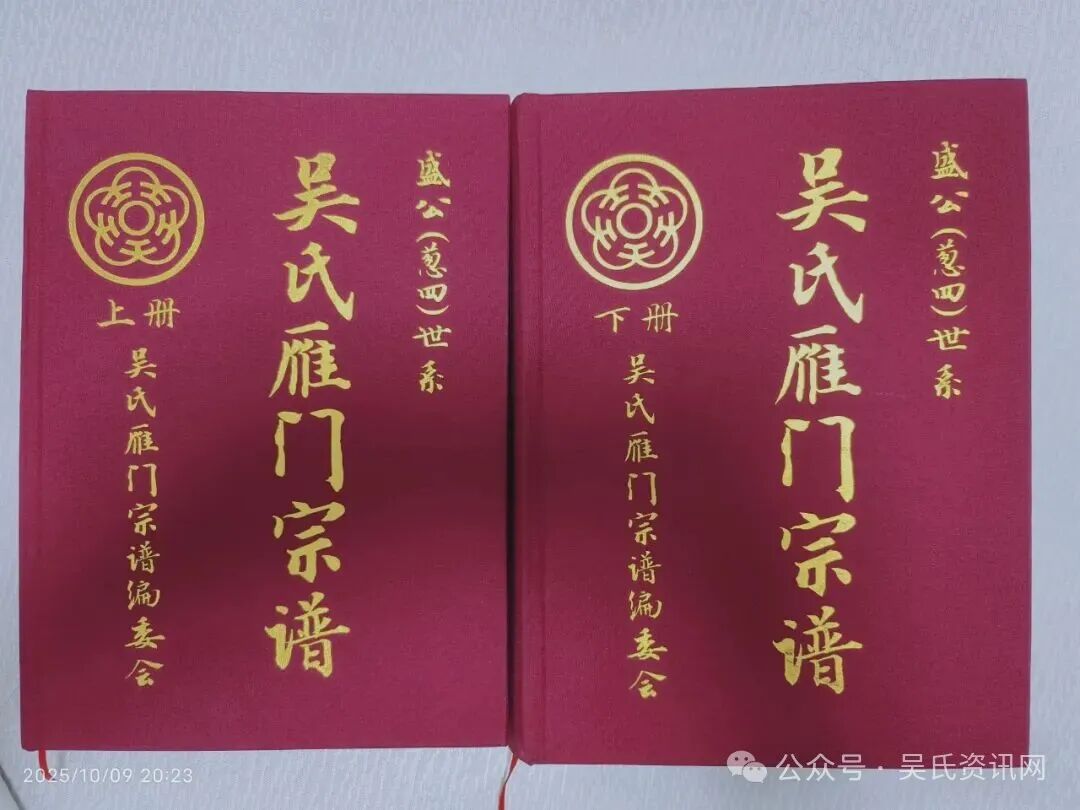 盛公(葱四)世系
吴氏雁门宗谱
上册
吴氏雁门宗谱编委会
盛公(葱四)世系
吴氏雁门宗谱
下册
吴氏雁门宗谱编委会
2025/10/09 20:23
公众号·吴氏资讯网